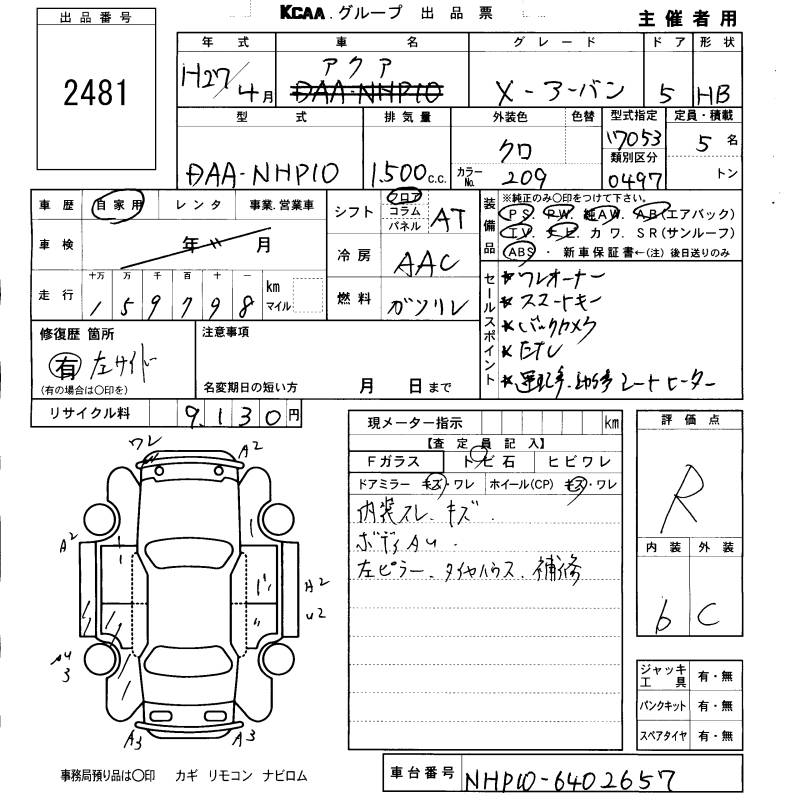 出品番号
2481
KCAA.グループ 出品票
主催者用
年式 車名 グレード ドア 形状
H27/4月 アクア X-アーバン 5 HB
DAA-NHP10
型式 排気量 外装色 色替 型式指定 定員・積載
DAA-NHP10 1.500c.c. クロ 17053 5名
カラーNo. 209 類別区分 0497 トン
車歴 自家用 レンタ 事業.営業車
車検 年 月
走行 十万 万 千 百 十 一
1 5 9 7 9 8 km マイル
シフト フロア コラム パネル AT
冷房 AAC
燃料 ガソリン
装備品
※純正のみ○印をつけて下さい。
PS. PW. 純AW. AB(エアバック)
TV. ナビ. カワ. SR(サンルーフ)
ABS ・ 新車保証書←(注)後日送りのみ
セールスポイント
★ワンオーナー
★スマートキー
★バックカメラ
★ETC
★運転席.助手席シートヒーター
修復歴 箇所
有 左サイド
(有の場合は○印を)
注意事項
名変期日の短い方 月 日まで
リサイクル料 9,130円
現メーター指示 km
【査定員記入】
Fガラス トビ石 ヒビワレ
ドアミラー キズ・ワレ ホイール(CP) キズ・ワレ
内装スレ.キズ.
ボディAU.
左ピラー.タイヤハウス.補修
評価点
R
内装 外装
6 C
ワレ A2
A2
A2
U2
A4
3
A3 A3
ジャッキ工具 有・無
パンクキット 有・無
スペアタイヤ 有・無
事務局預り品は○印 カギ リモコン ナビロム
車台番号 NHP10-6402657